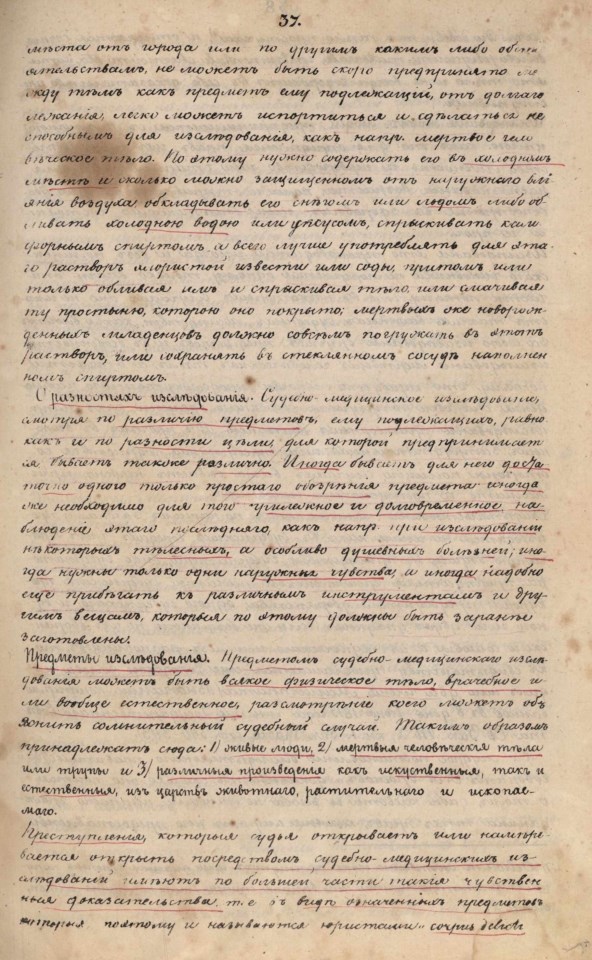 37.
мѣста отъ города или по другимъ какимъ либо обсто
ятельствамъ, не можетъ быть скоро предпринято ме
жду тѣмъ какъ предметъ ему подлежащій, отъ долгаго
лежанія, леско можетъ испортиться и сдѣлаться не
способнымъ для изслѣдованія, какъ напр. мертвое чело
вѣческое тѣло. По этому нужно содержать его въ холодномъ
мѣстѣ и сколько можно защищенномъ отъ наружнаго влі
янія воздуха обкладывать его снѣгомъ или льдомъ либо об
ливать холодною водою или уксусомъ, спрыскивать кам
форнымъ спиртомъ, а всего лучше употреблять для эта
го растворъ хлористой извести или соды, притомъ или
только обливая имъ и спрыскивая тѣло, или смачивая
ту простыню, которою оно покрыто; мертвыхъ же новорож
денныхъ младенцовъ должно совсѣмъ погружать въ этотъ
растворъ, или сохранять въ стеклянномъ сосудѣ наполнен
номъ спиртомъ.
О разностяхъ изслѣдованія. Судебно-медицинское изслѣдованіе,
смотря по различію предметовъ, ему подлежащихъ, равно
какъ и по разности цѣли, для которой предпринимает
ся бываетъ также различно. Иногда бываетъ для него доста
точно одного только простаго обозрѣнія предмета иногда
же необходимо для того прилежное и долговременное на
блюденіе этаго послѣдняго, какъ напр. при изслѣдованіи
нѣкоторыхъ тѣлесныхъ, а особливо душевныхъ болѣзней; ино
гда нужны только одни наружныя чувства, а иногда надобно
еще прибѣгать къ различнымъ инструментамъ и дру
гимъ вещамъ, которыя по этому должны быть заранѣе
заготовлены.
Предметы изслѣдованія. Предметомъ судебно-медицинскаго изслѣ
дованія можетъ быть всякое физическое тѣло, врачебное и
ли вообще естественное, разсмотрѣніе коего можетъ объ
яснить сомнительный судебный случай. Такимъ образомъ
принадлежатъ сюда: 1/ живые люди, 2/ мертвыя человѣческія тѣла
или трупы и 3/ различныя произведенія какъ искуственныя, такъ и
естественныя, изъ царствъ животнаго, растительнаго и ископае
маго.
Преступленія, которыя судья открываетъ или намѣре
вается открыть посредствомъ судебно-медицинскихъ из
слѣдованій имѣютъ по большей части такія чувствен
ныя доказательства т. е въ видѣ означенныхъ предметовъ
которыя поэтому и называются юристами "corpus delicti